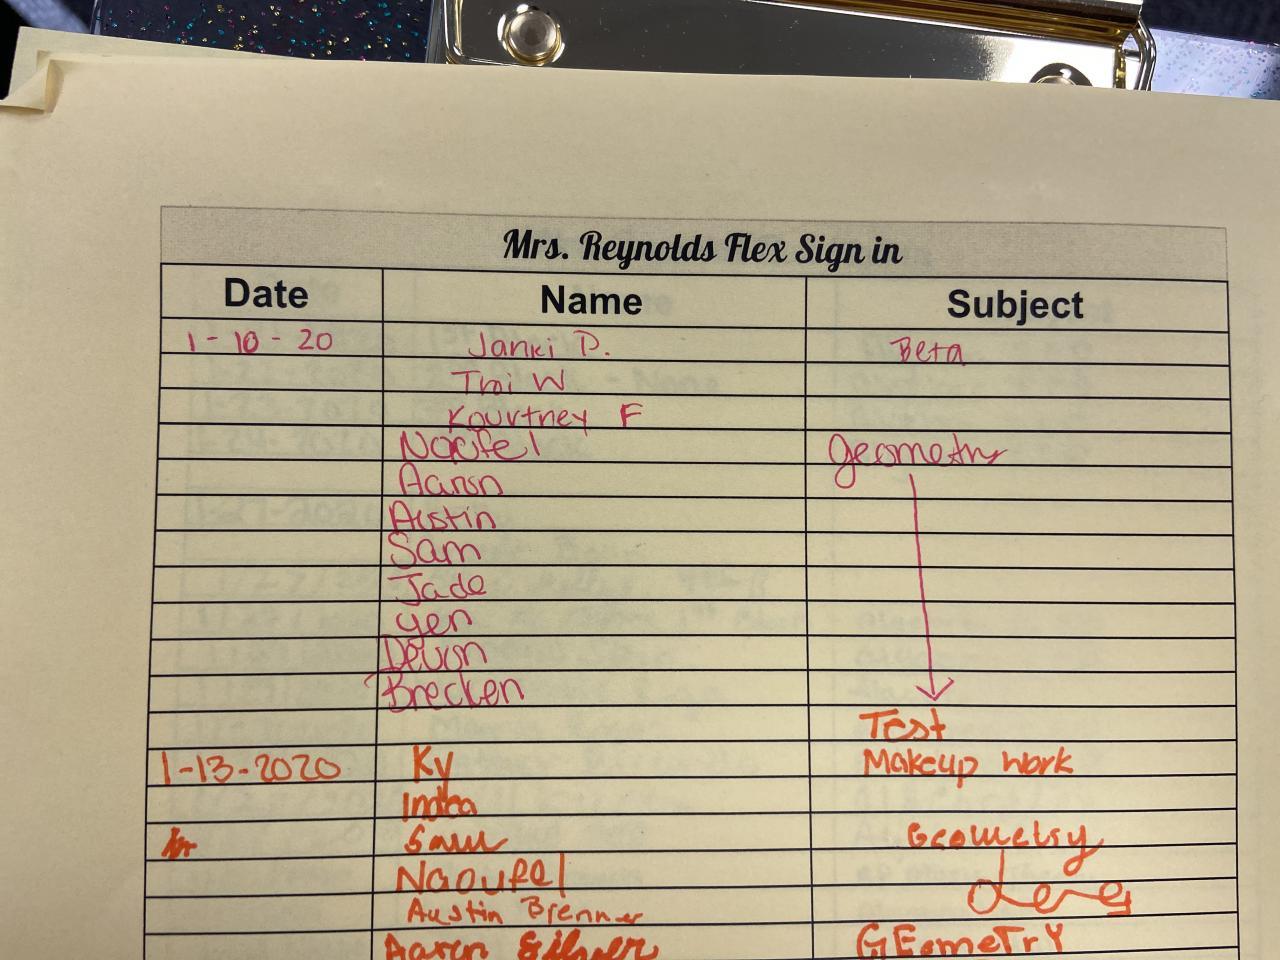 Mrs. Reynolds Flex Sign in
Date Name Subject
1-10-20 Janki P. Beta
Thi W
Kourtney F
Naoufel geometry
Aaron
Austin
Sam
Jade
yen
Devon
Brecken
Test
1-13-2020 Ky Makeup work
India
Sam Geometry
Naoufel
Austin Brenner
Aaron GEomeTrY